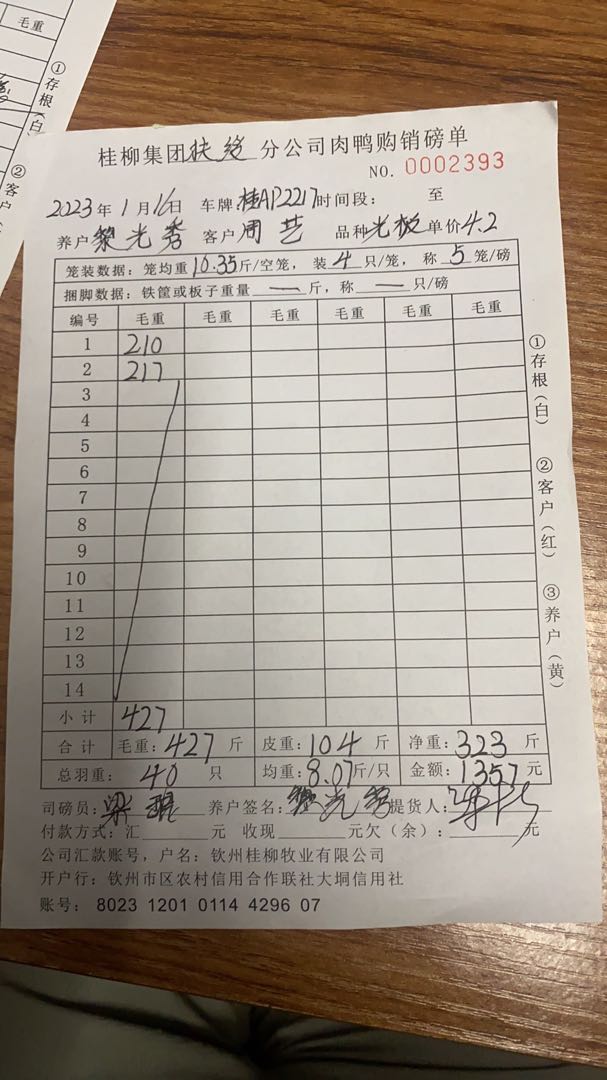 毛重
①存根(白
②客户
桂柳集团扶绥分公司肉鸭购销磅单
NO. 0002393
2023年1月16日 车牌:桂AP2217时间段: 至
养户黎光秀 客户周艺 品种光板单价4.2
笼装数据:笼均重10.35斤/空笼,装4只/笼,称5笼/磅
捆脚数据:铁筐或板子重量—斤,称—只/磅
编号 毛重 毛重 毛重 毛重 毛重 毛重
1 210
2 217
3
4
5
6
7
8
9
10
11
12
13
14
小计 427
合计 毛重:427斤 皮重:104斤 净重:323斤
总羽重:40只 均重:8.07斤/只 金额:1357元
司磅员:梁 养户签名:黎光秀 提货人:
付款方式:汇 元 收现 元欠(余): 元
公司汇款账号,户名:钦州桂柳牧业有限公司
开户行:钦州市区农村信用合作联社大垌信用社
账号:8023 1201 0114 4296 07
①存根(白)
②客户(红)
③养户(黄)